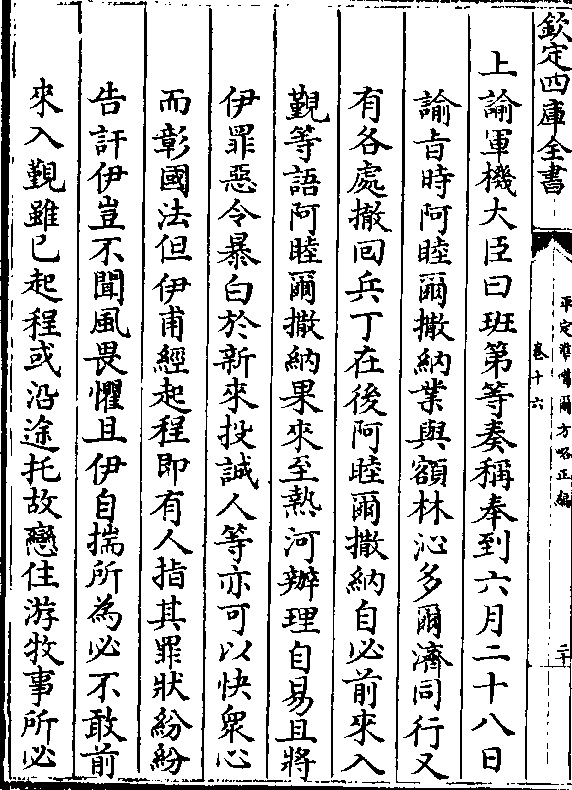 欽定四庫全書
平定準噶爾方略正編
卷十六
二十
上諭軍機大臣曰班第等奏稱奉到六月二十八日
諭旨時阿睦爾撒納業與額林沁多爾濟同行又
有各處撤回兵丁在後阿睦爾撒納自必前來入
覲等語阿睦爾撒納果來至熱河辦理自易且將
伊罪惡令暴白於新來投誠人等亦可以快衆心
而彰國法但伊甫經起程即有人指其罪狀紛紛
告訐伊豈不聞風畏懼且伊自揣所為必不敢前
來入覲雖已起程或沿途托故戀住游牧事所必